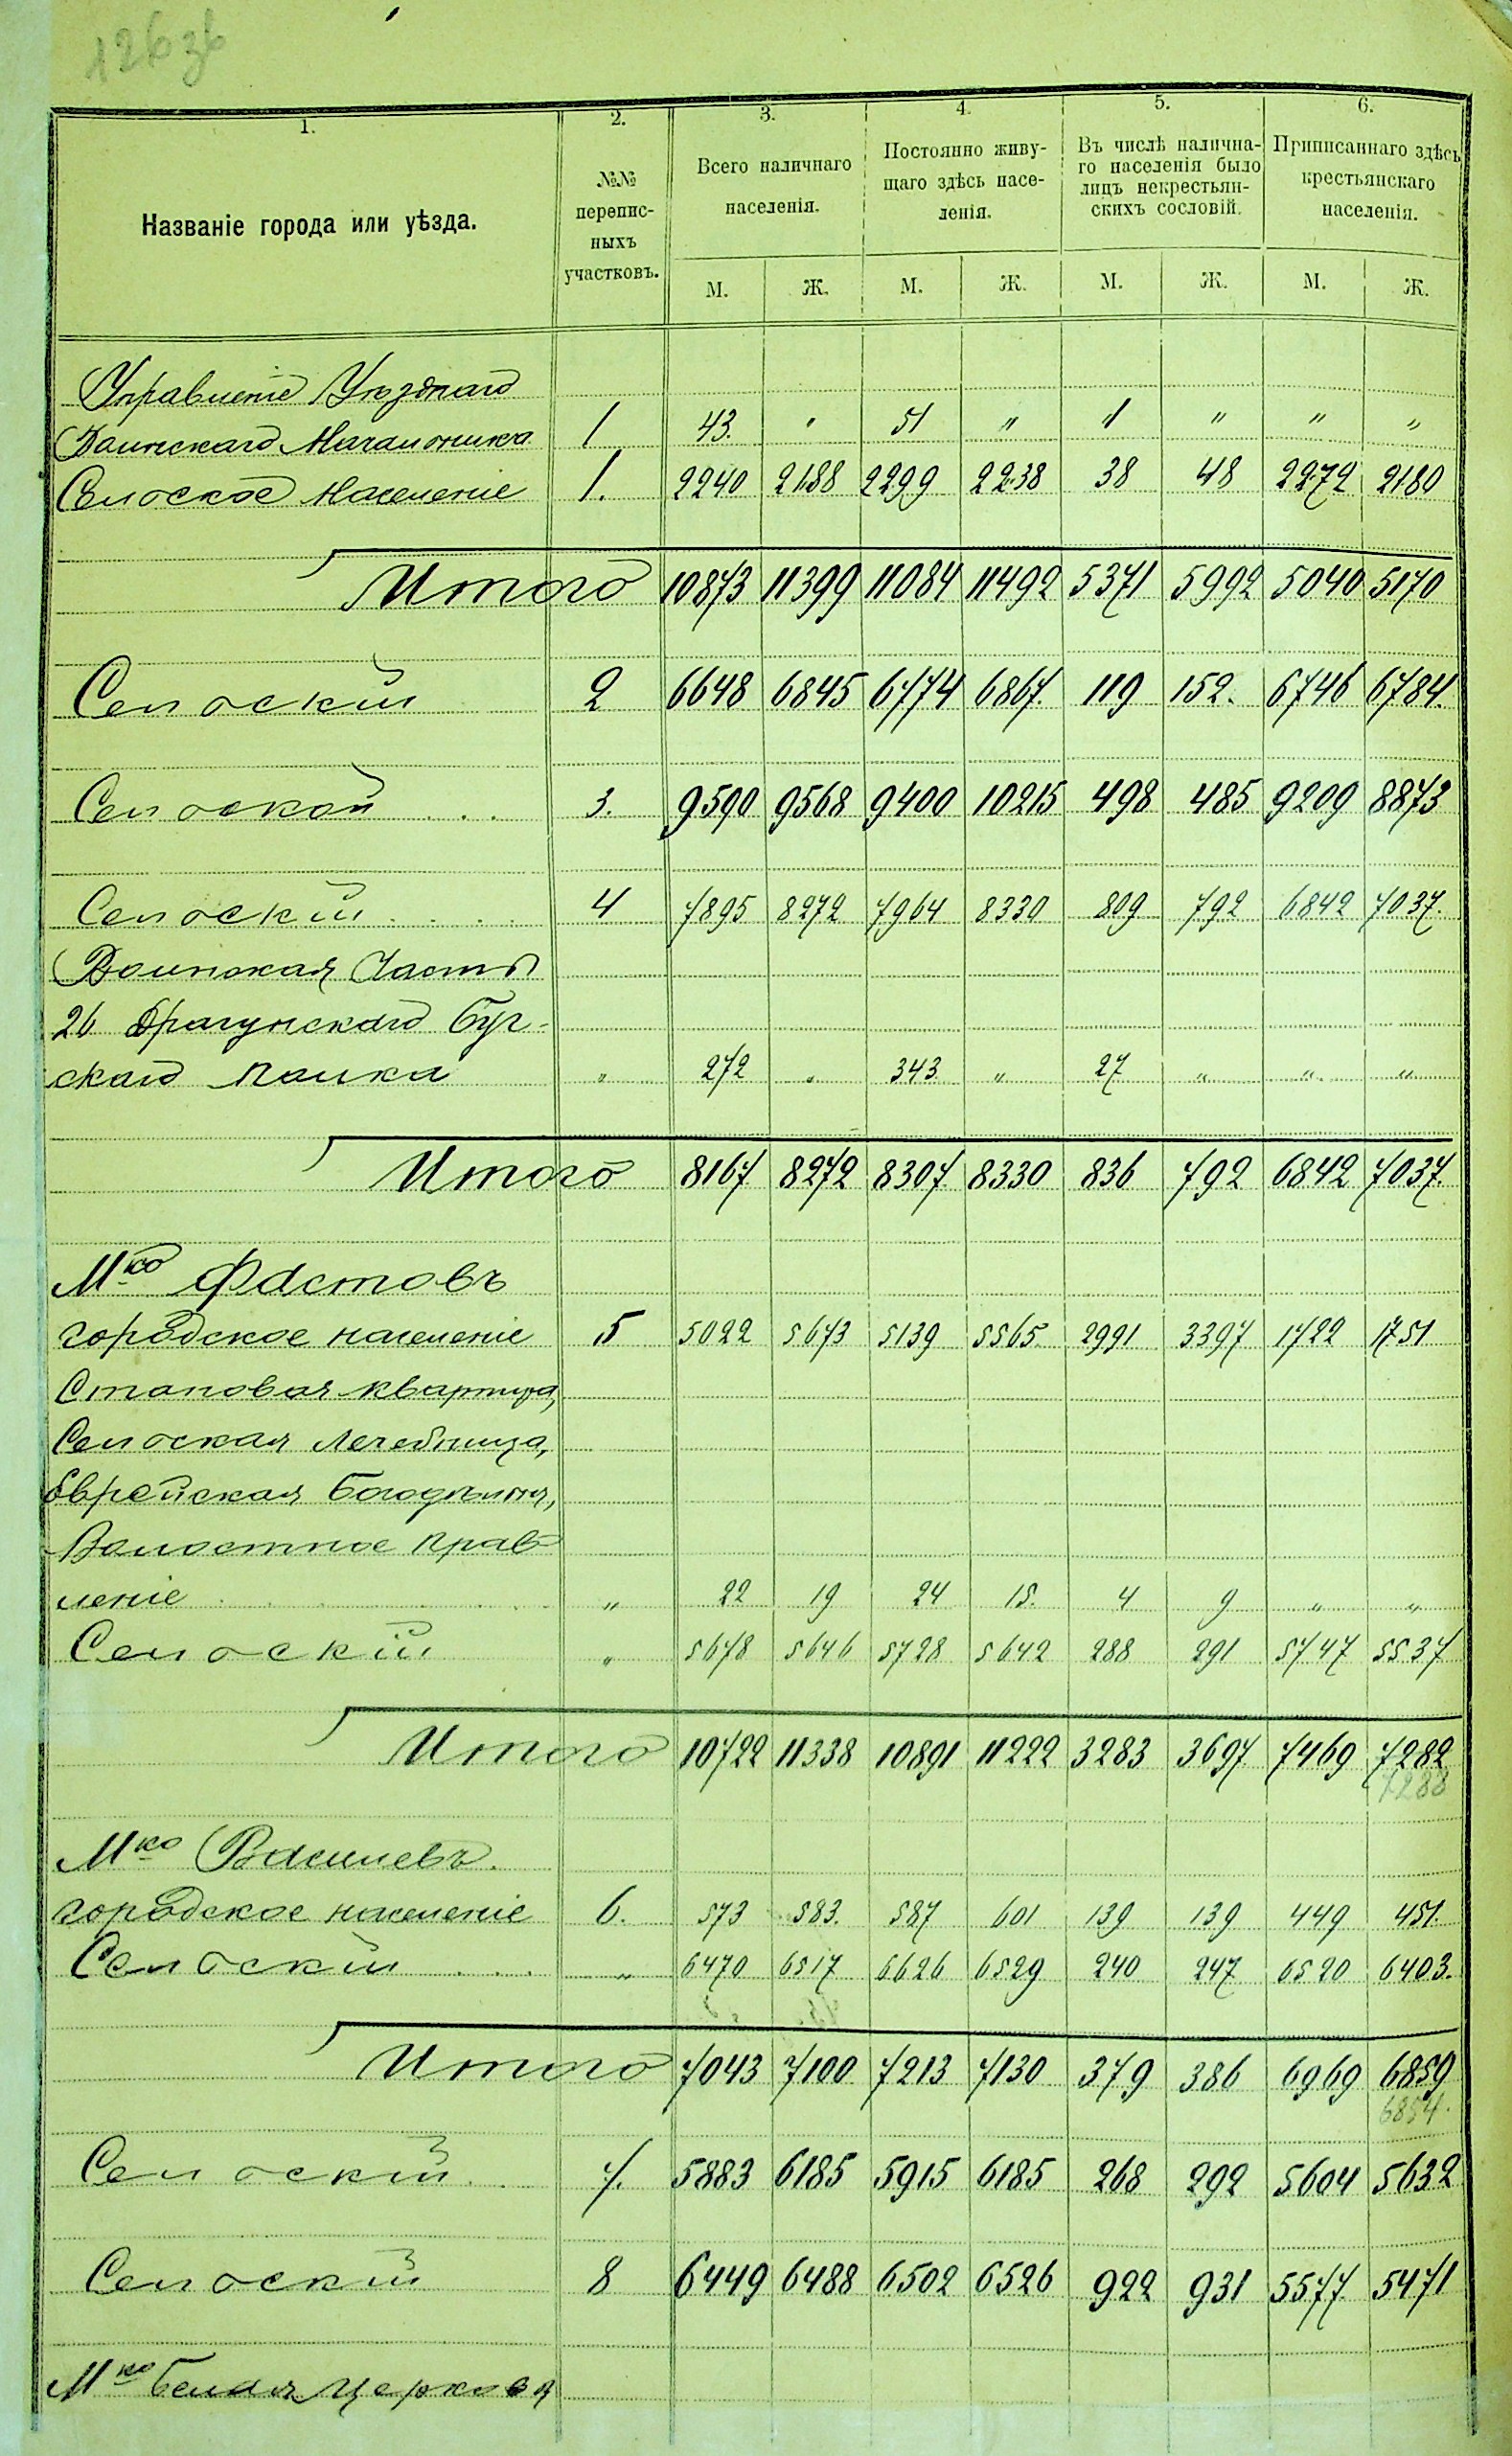 126 зв
1. 2. 3. 4. 5. 6.
Названіе города или уѣзда.
№№ перепис-
ныхъ
участковъ.
Всего наличнаго
населенія.
Постоянно живу-
щаго здѣсь насе-
ленія.
Въ числѣ налична-
го населенія было
лицъ некрестьян-
скихъ сословій.
Приписаннаго здѣсь
крестьянскаго
населенія.
М. Ж. М. Ж. М. Ж. М. Ж.
Управленіе Уѣзднаго
Воинскаго Начальника 1 43. " 51 " 1 " " "
Сельское Населеніе 1. 2240 2188 2299 2238 38 48 2272 2180
Итого 10873 11399 11084 11492 5371 5992 5040 5170
Сельскій 2 6648 6845 6774 6867. 119 152. 6746 6784.
Сельской . . . 3. 9590 9568 9400 10215 498 485 9209 8873
Сельскій . . . . 4 7895 8272 7964 8330 809 792 6842 7037.
Воинская Часть
26 Драгунскаго Буг-
скаго полка " 272 " 343 " 27 " " "
Итого 8167 8272 8307. 8330 836 792 6842 7037.
Мко Фастовъ
городское населеніе 5 5022 5673 5139 5565. 2991 3397 1722 1751
Становая квартира,
Сельская лечебница,
Еврейская Богодѣльня,
Волостное прав-
леніе . . . " 22 19 24 15. 4 9 " "
Сельскій " 5678 5646 5728 5642 288 291 5747 5537
Итого 10722 11338 10891 11222 3283 3697 7469 7282
7288
Мко Василевъ.
городское населеніе 6. 573 583. 587 601 139 139 449 451.
Сельскій . . . " 6470 6517 6626 6529 240 247 6520 6403.
Итого 7043 7100 7213 7130 379 386 6969 6859
6854.
Сельскій . . 7. 5883 6185 5915 6185 268 292 5604 5632
Сельскій 8 6449 6488 6502 6526 922 931 5577. 5471
Мко Белая Церковь